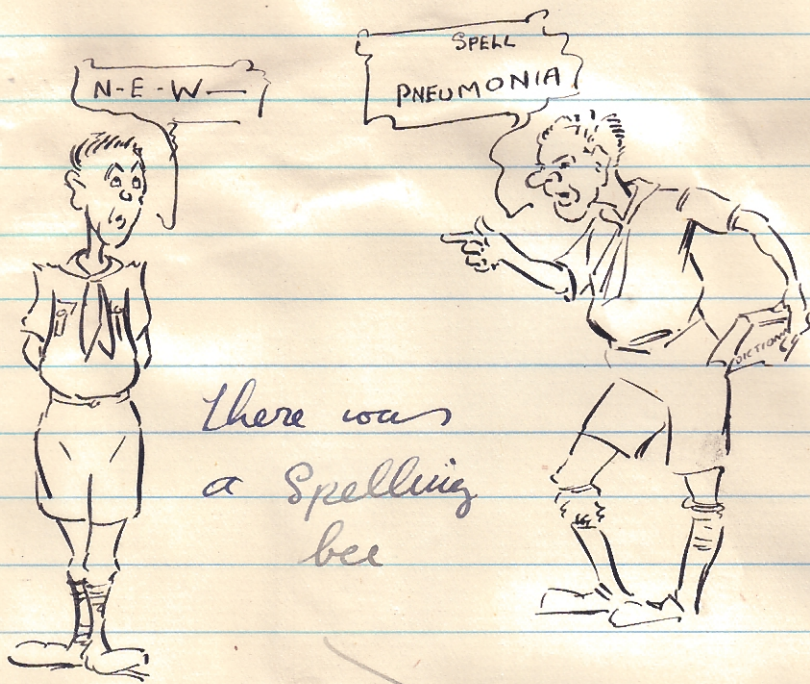 N-E-W—
SPELL
PNEUMONIA
DICTION
There was
a Spelling
bee